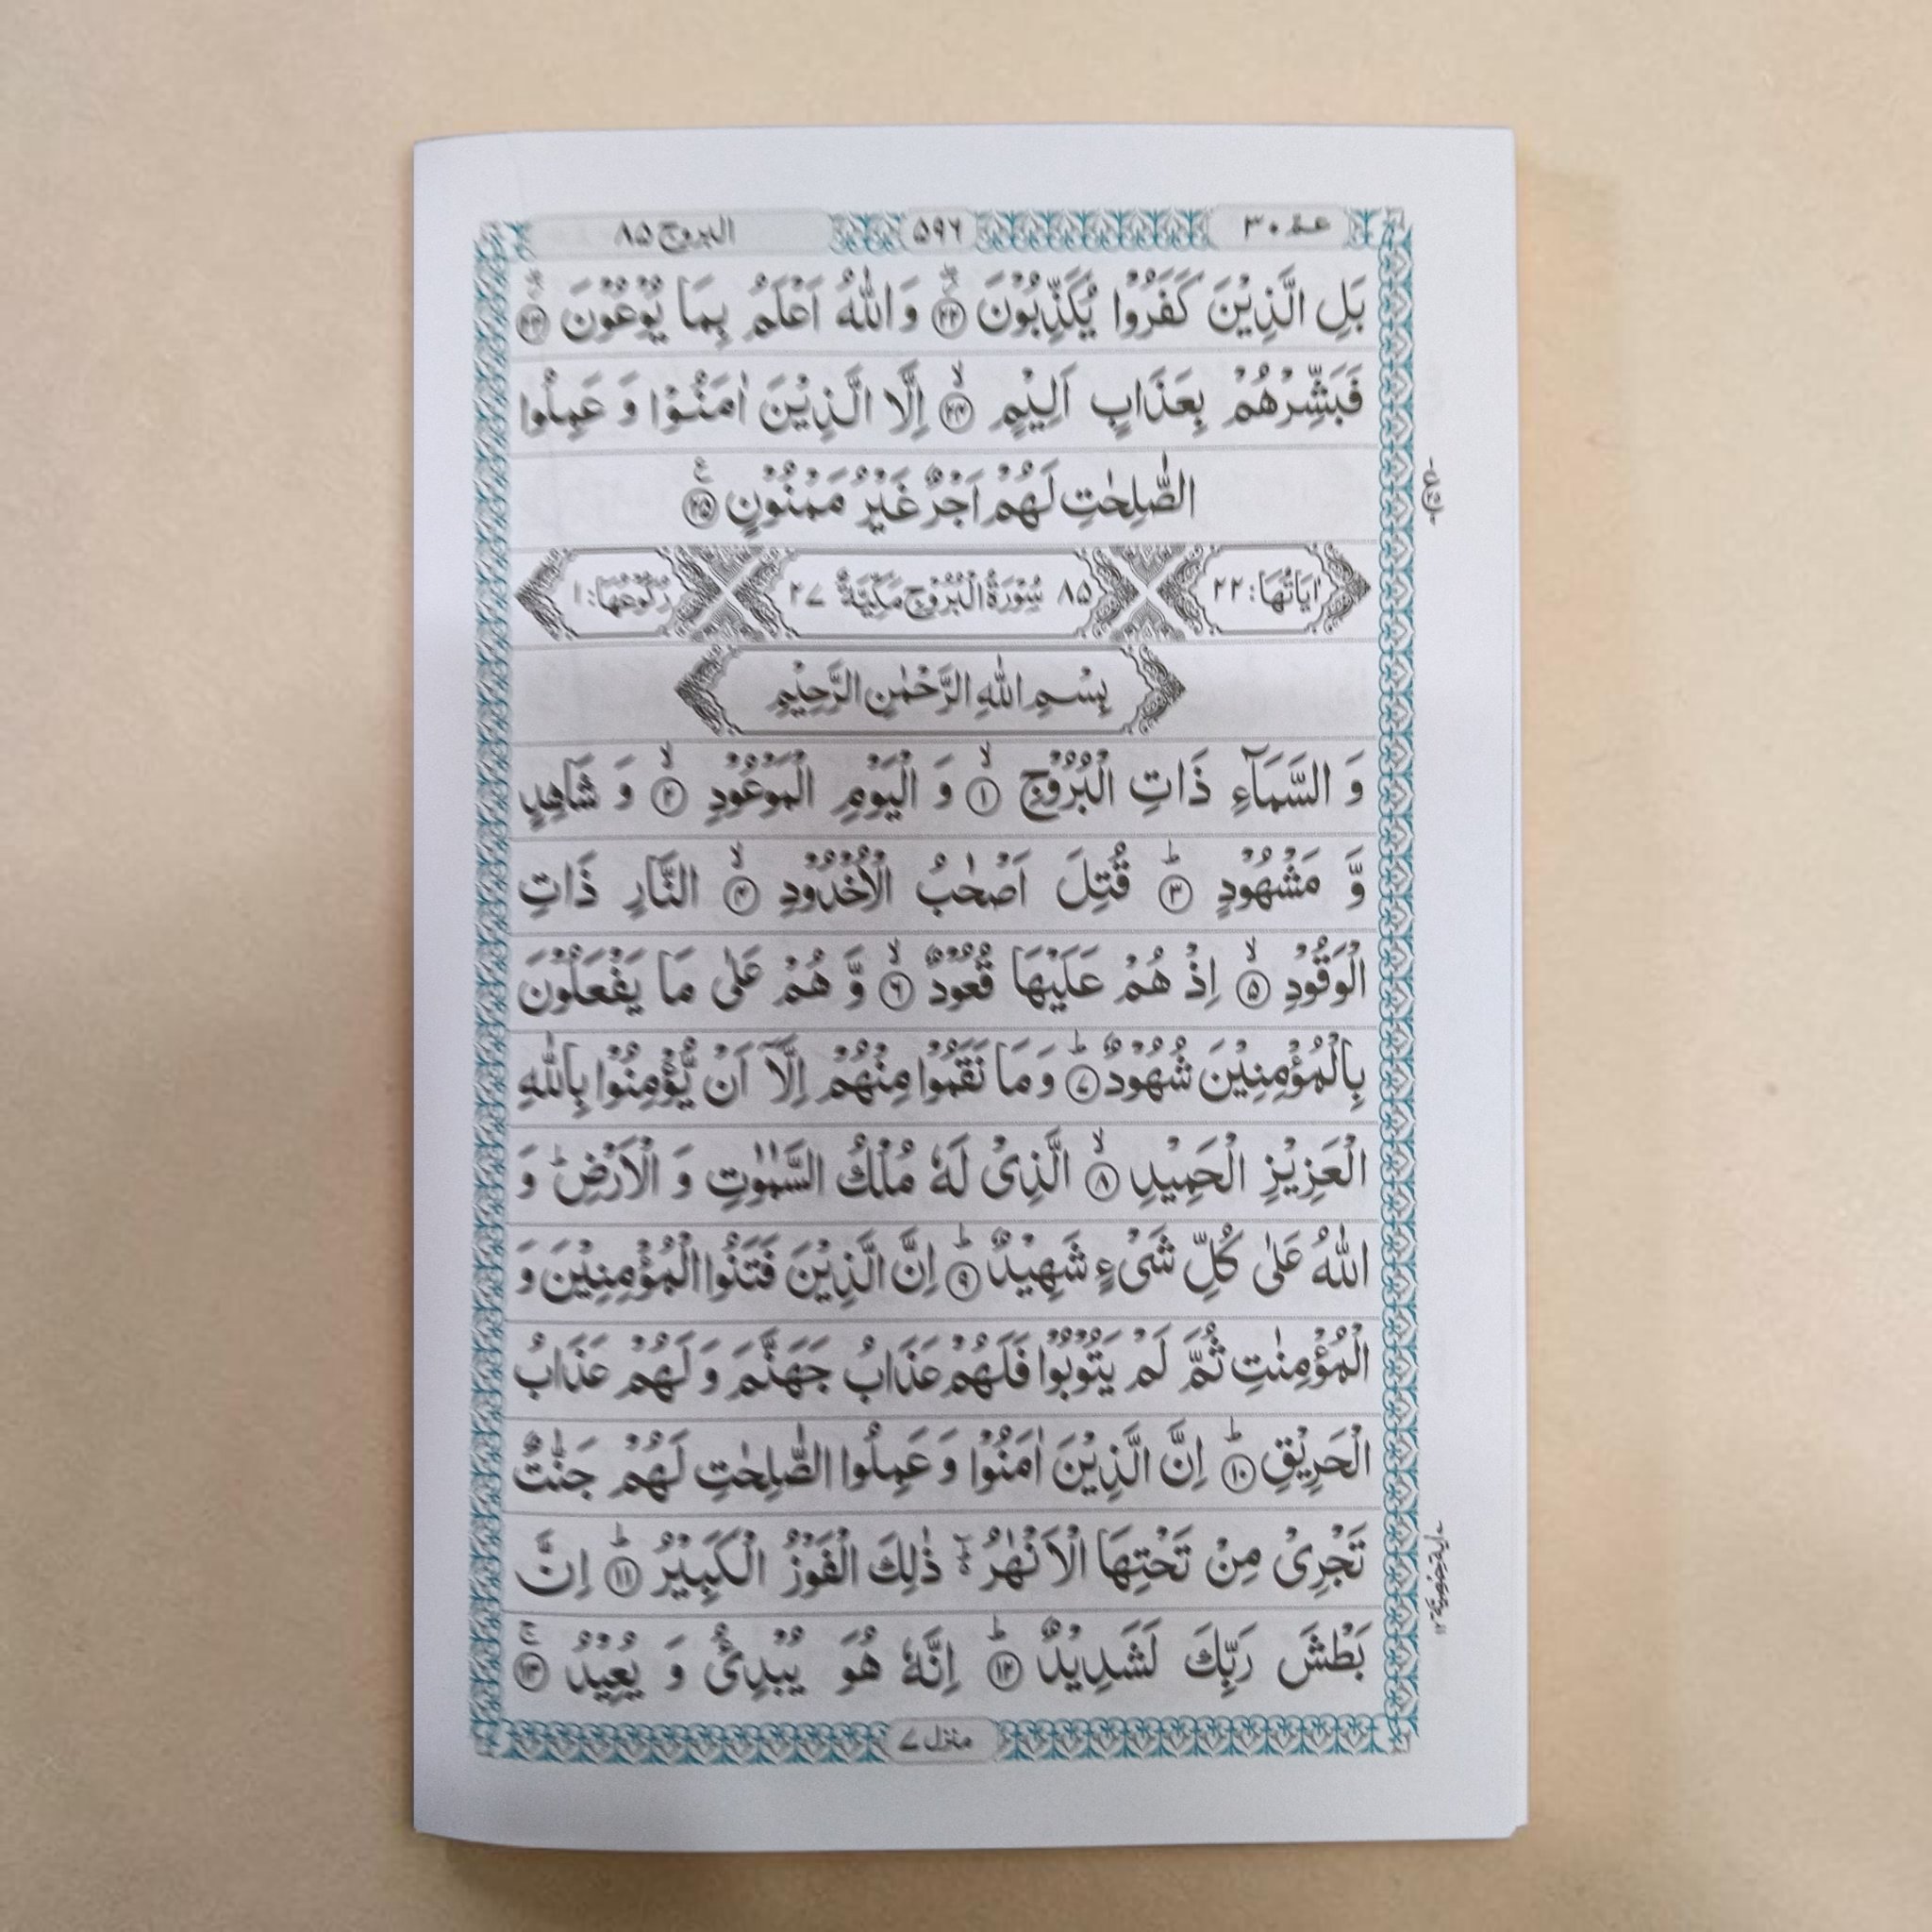 عم ۳۰ ۵۹۶ البروج ۸۵
بَلِ الَّذِيْنَ كَفَرُوْا يُكَذِّبُوْنَ ۲۲ وَ اللّٰهُ اَعْلَمُ بِمَا يُوْعُوْنَ ۲۳
فَبَشِّرْهُمْ بِعَذَابٍ اَلِيْمٍ ۲۴ۙ اِلَّا الَّذِيْنَ اٰمَنُوْا وَ عَمِلُوا
الصّٰلِحٰتِ لَهُمْ اَجْرٌ غَيْرُ مَمْنُوْنٍ ۲۵
اٰيَاتُهَا: ۲۲ ۸۵ سُوْرَةُ الْبُرُوْجِ مَكِّيَّةٌ ۲۷ رُكُوْعُهَا: ۱
بِسْمِ اللّٰهِ الرَّحْمٰنِ الرَّحِيْمِ
وَ السَّمَآءِ ذَاتِ الْبُرُوْجِ ۱ۙ وَ الْيَوْمِ الْمَوْعُوْدِ ۲ۙ وَ شَاهِدٍ
وَّ مَشْهُوْدٍ ۳ؕ قُتِلَ اَصْحٰبُ الْاُخْدُوْدِ ۴ۙ النَّارِ ذَاتِ
الْوَقُوْدِ ۵ۙ اِذْ هُمْ عَلَيْهَا قُعُوْدٌ ۶ۙ وَّ هُمْ عَلٰى مَا يَفْعَلُوْنَ
بِالْمُؤْمِنِيْنَ شُهُوْدٌ ۷ؕ وَ مَا نَقَمُوْا مِنْهُمْ اِلَّاۤ اَنْ يُّؤْمِنُوْا بِاللّٰهِ
الْعَزِيْزِ الْحَمِيْدِ ۸ۙ الَّذِيْ لَهٗ مُلْكُ السَّمٰوٰتِ وَ الْاَرْضِؕ وَ
اللّٰهُ عَلٰى كُلِّ شَيْءٍ شَهِيْدٌ ۹ؕ اِنَّ الَّذِيْنَ فَتَنُوا الْمُؤْمِنِيْنَ وَ
الْمُؤْمِنٰتِ ثُمَّ لَمْ يَتُوْبُوْا فَلَهُمْ عَذَابُ جَهَنَّمَ وَ لَهُمْ عَذَابُ
الْحَرِيْقِ ۱۰ؕ اِنَّ الَّذِيْنَ اٰمَنُوْا وَ عَمِلُوا الصّٰلِحٰتِ لَهُمْ جَنّٰتٌ
تَجْرِيْ مِنْ تَحْتِهَا الْاَنْهٰرُ ذٰلِكَ الْفَوْزُ الْكَبِيْرُ ۱۱ؕ اِنَّ
بَطْشَ رَبِّكَ لَشَدِيْدٌ ۱۲ؕ اِنَّهٗ هُوَ يُبْدِئُ وَ يُعِيْدُ ۱۳ۚ
منزل ۷